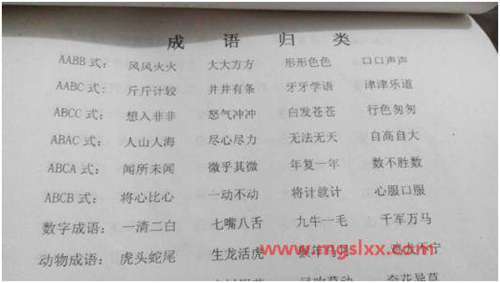 成 语 归 类
AABB 式： 风风火火 大大方方 形形色色 口口声声
AABC 式： 斤斤计较 井井有条 牙牙学语 津津乐道
ABCC 式： 想入非非 怒气冲冲 白发苍苍 行色匆匆
ABAC 式： 人山人海 尽心尽力 无法无天 自高自大
ABCA 式： 闻所未闻 微乎其微 年复一年 数不胜数
ABCB 式： 将心比心 一动不动 将计就计 心服口服
数字成语： 一清二白 七嘴八舌 九牛一毛 千军万马
www.mgslxx.com
动物成语： 虎头蛇尾 生龙活虎
风吹草动 奇花异草